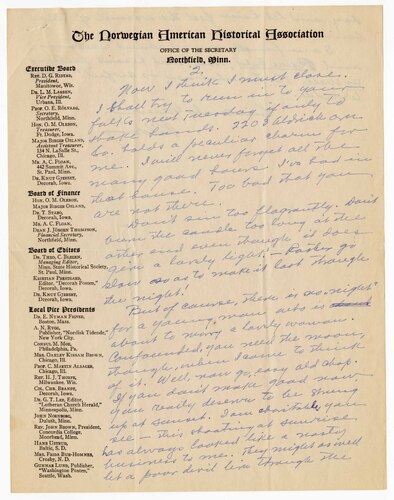 The Norwegian American Historical Association
OFFICE OF THE SECRETARY
Northfield, Minn.
Executive Board
REV. D. G. RISTAD,
President,
Manitowoc, Wis.
DR. L. M. LARSON,
Vice President,
Urbana, Ill.
PROF. O. E. RÖLVAAG,
Secretary,
Northfield, Minn.
HON. O. M. OLESON,
Treasurer,
Ft. Dodge, Iowa.
BIRGER OSLAND,
Assistant Treasurer,
134 N. LaSalle St.,
Chicago, Ill.
MR. A. C. FLOAN,
St. Paul, Minn.
DR. KNUT GJERSET,
Decorah, Iowa.
Board of Finance
HON. O. M. OLESON,
BIRGER OSLAND,
DR. T. STABO,
Decorah, Iowa.
MR. A. C. FLOAN,
DEAN J. JÖRGEN THOMPSON,
Financial Secretary,
Northfield, Minn.
Board of Editors
DR. THEO. C. BLEGEN,
Managing Editor,
Minn. State Historical Society,
St. Paul, Minn.
KRISTIAN PRESTGARD,
Editor, "Decorah Posten,"
Decorah, Iowa.
DR. KNUT GJERSET,
Decorah, Iowa.
Local Vice Presidents
Boston, Mass.
A. N. RYGG,
Publisher, "Nordisk Tidende,"
New York City.
CONSUL M. MOE,
Philadelphia, Pa.
MRS. OAKLEY KISSAM BROWN,
Chicago, Ill.
PROF. C. MARTIN ALSAGER,
Chicago, Ill.
REV. H. J. THORPE,
Milwaukee, Wis.
CHR. BRANDT,
Decorah, Iowa.
DR. G. T. LEE, Editor,
"Lutheran Church Herald,"
Minneapolis, Minn.
JOHN NORBORG,
Duluth, Minn.
REV. JOHN BROWN, President,
Concordia College,
Moorhead, Minn.
HANS USTRUD,
Baltic, S. D.
MRS. FRIDA BUE-HOMNES,
Crosby, N. D.
GUNNAR LUND, Publisher,
"Washington Posten,"
Seattle, Wash.
2.
Now I think I must close.
I shall try to run in to your
folks next Tuesday if only to
shake hands. 2203 Aldrich Av.
So. holds a peculiar charm for
me. I will never forget all the
many good hours I've had in
that house. Too bad that you
are not there.
Don't sin too flagrantly. Don't
burn the candle too long at the
other end even though it does
give a lovely light! — go
slow so as to make it last through
the night!
But of course, there is no "night"
for a young man who is
about to marry a lovely woman.
Confounded, you need the moon,
though, when I come to think
of it. Well, now go, easy old chap.
If you don't make good now
you really deserve to be strung
up at sunset. I am charitable you
see — this shooting at sunrise
has always looked like a nasty
business to me. They might as well
let a poor devil live through the